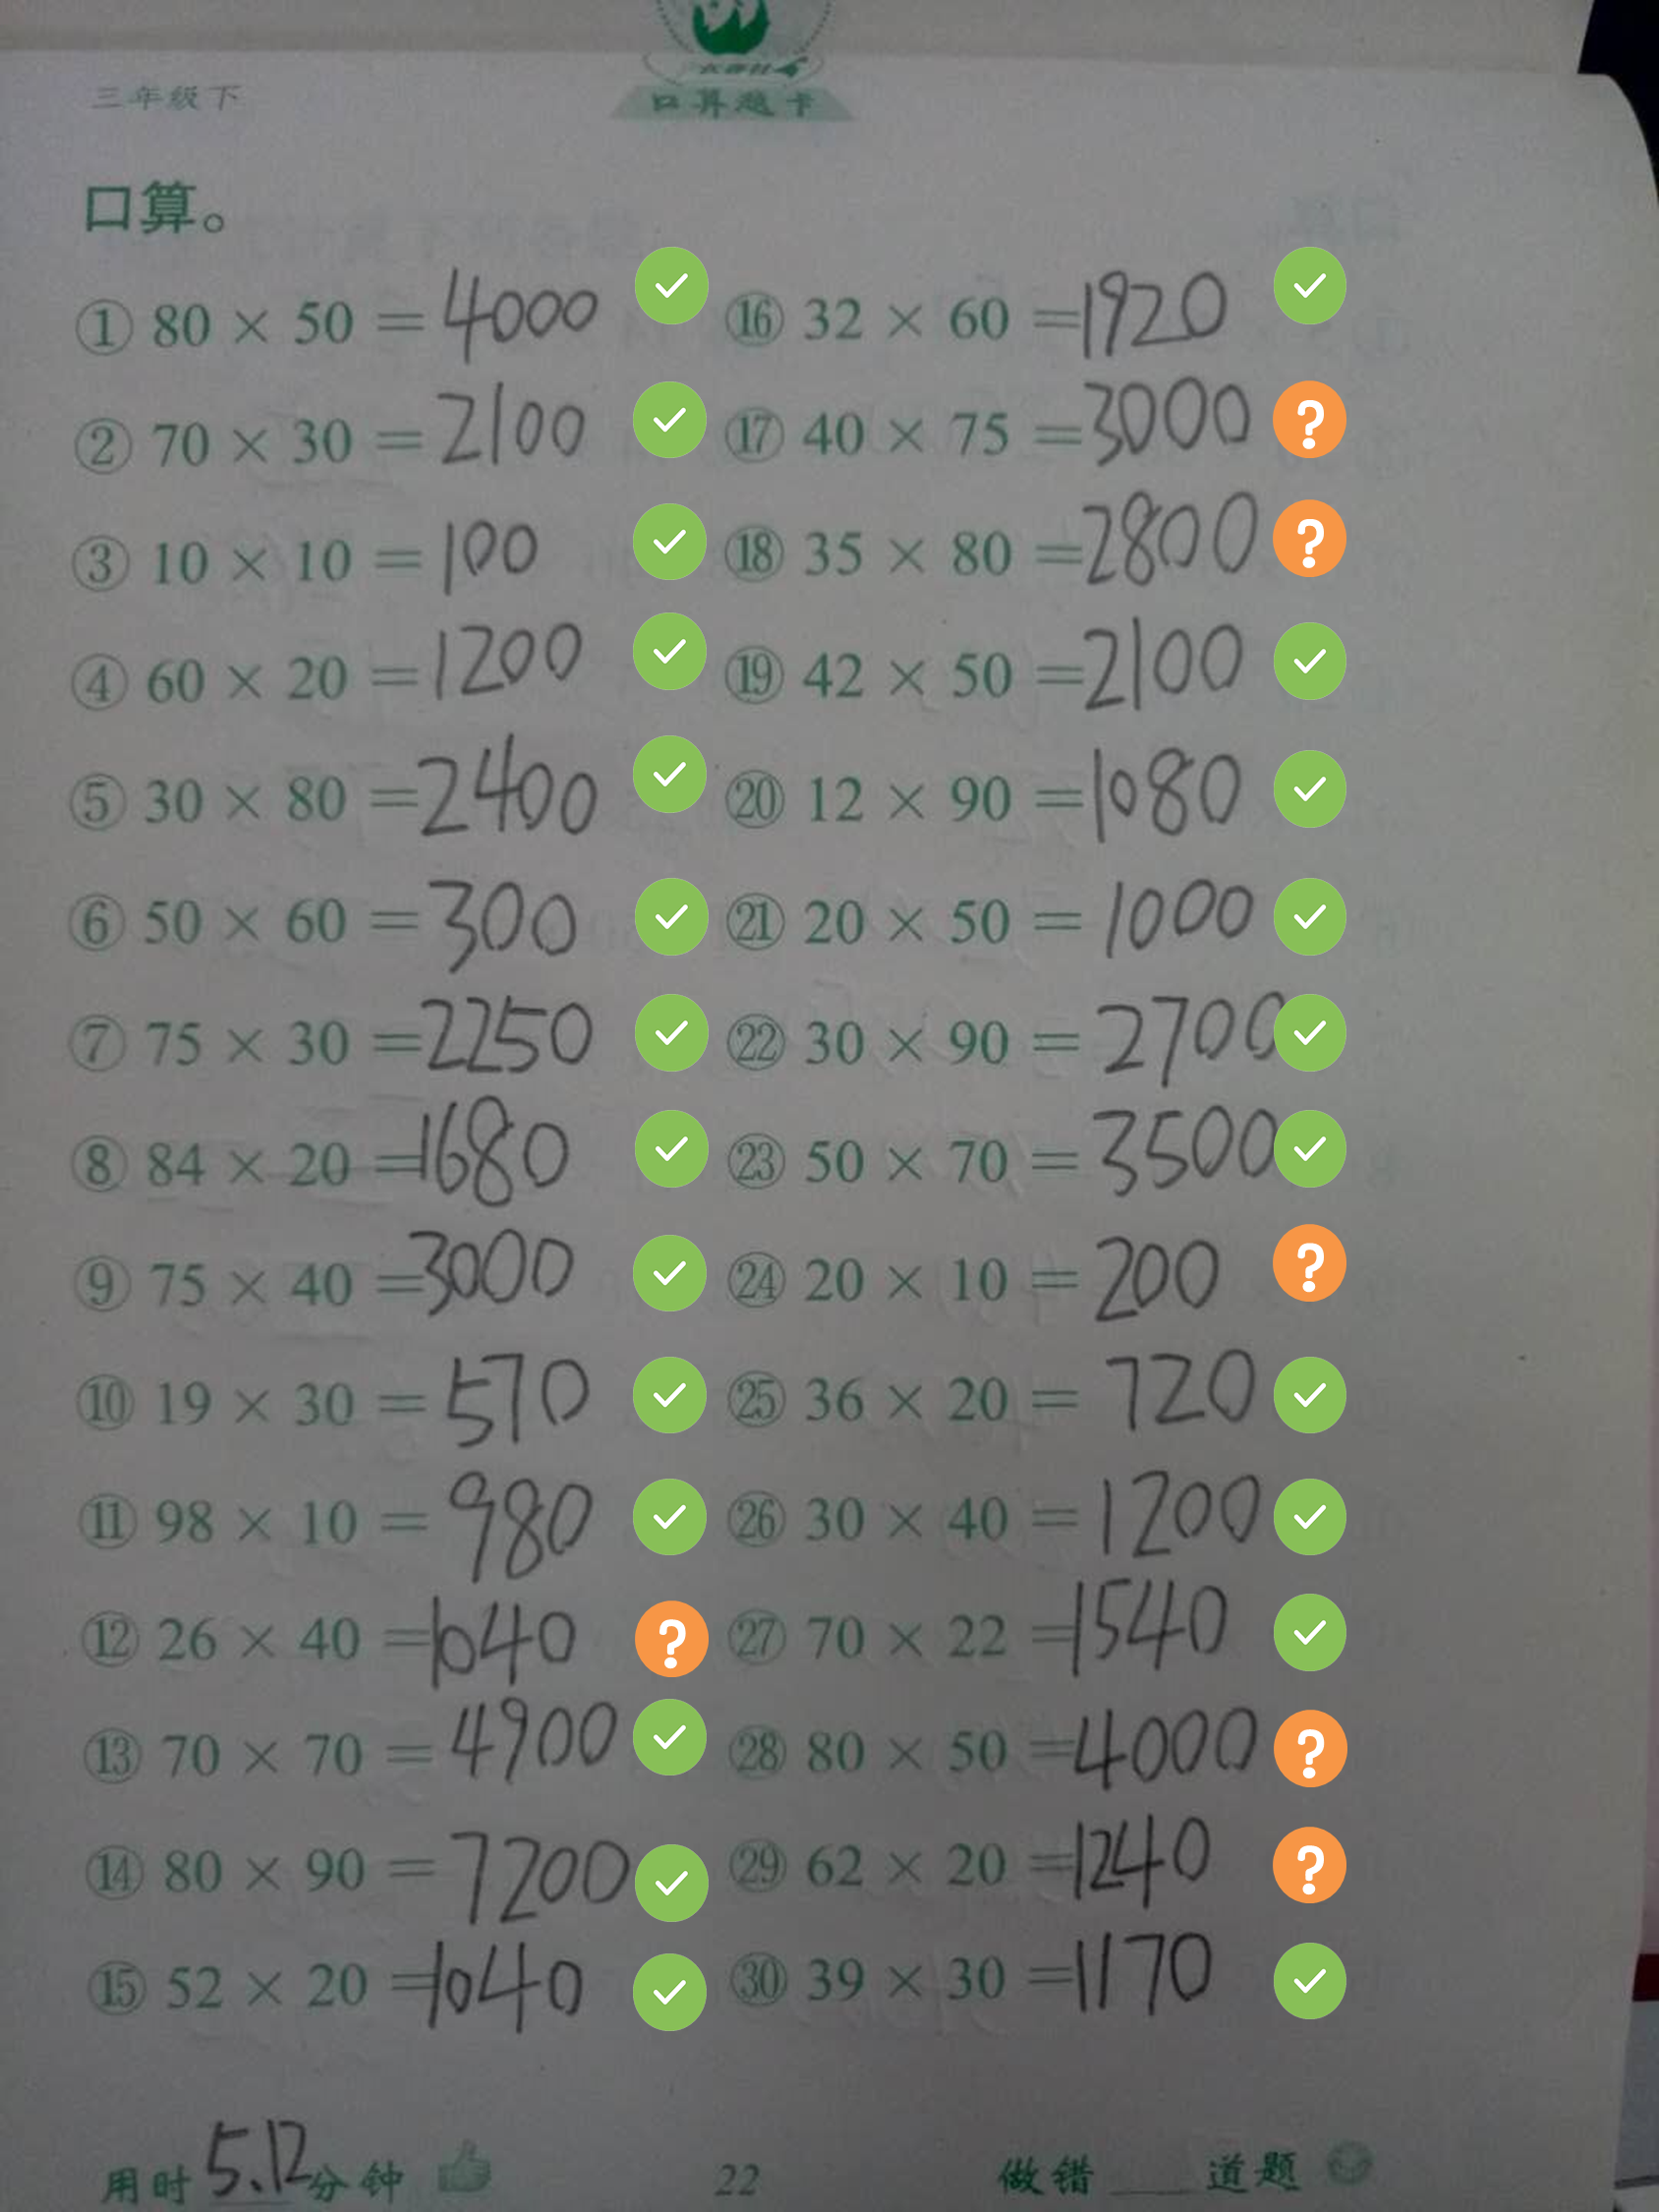 三年级下
口算题卡
口算。
① 80 × 50 = 4000
② 70 × 30 = 2100
③ 10 × 10 = 100
④ 60 × 20 = 1200
⑤ 30 × 80 = 2400
⑥ 50 × 60 = 300
⑦ 75 × 30 = 2250
⑧ 84 × 20 = 1680
⑨ 75 × 40 = 3000
⑩ 19 × 30 = 570
⑪ 98 × 10 = 980
⑫ 26 × 40 = 1040
⑬ 70 × 70 = 4900
⑭ 80 × 90 = 7200
⑮ 52 × 20 = 1040
⑯ 32 × 60 = 1920
⑰ 40 × 75 = 3000 ?
⑱ 35 × 80 = 2800 ?
⑲ 42 × 50 = 2100
⑳ 12 × 90 = 1080
㉑ 20 × 50 = 1000
㉒ 30 × 90 = 2700
㉓ 50 × 70 = 3500
㉔ 20 × 10 = 200 ?
㉕ 36 × 20 = 720
㉖ 30 × 40 = 1200
㉗ 70 × 22 = 1540
㉘ 80 × 50 = 4000 ?
㉙ 62 × 20 = 1240 ?
㉚ 39 × 30 = 1170
用时 5.12 分钟
22
做错 ___ 道题